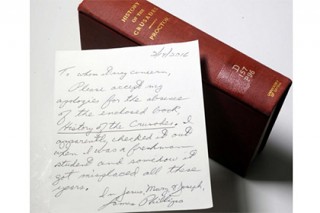 HISTORY
OF THE
CRUSADES
PROCTOR
D
157
P96
To whom it may concern,
Please accept my
apologies for the absence
of the enclosed book,
History of the Crusades. I
apparently checked it out
when I was a freshman
student and somehow it
got misplaced all these
years.
In Jesus, Mary & Joseph,